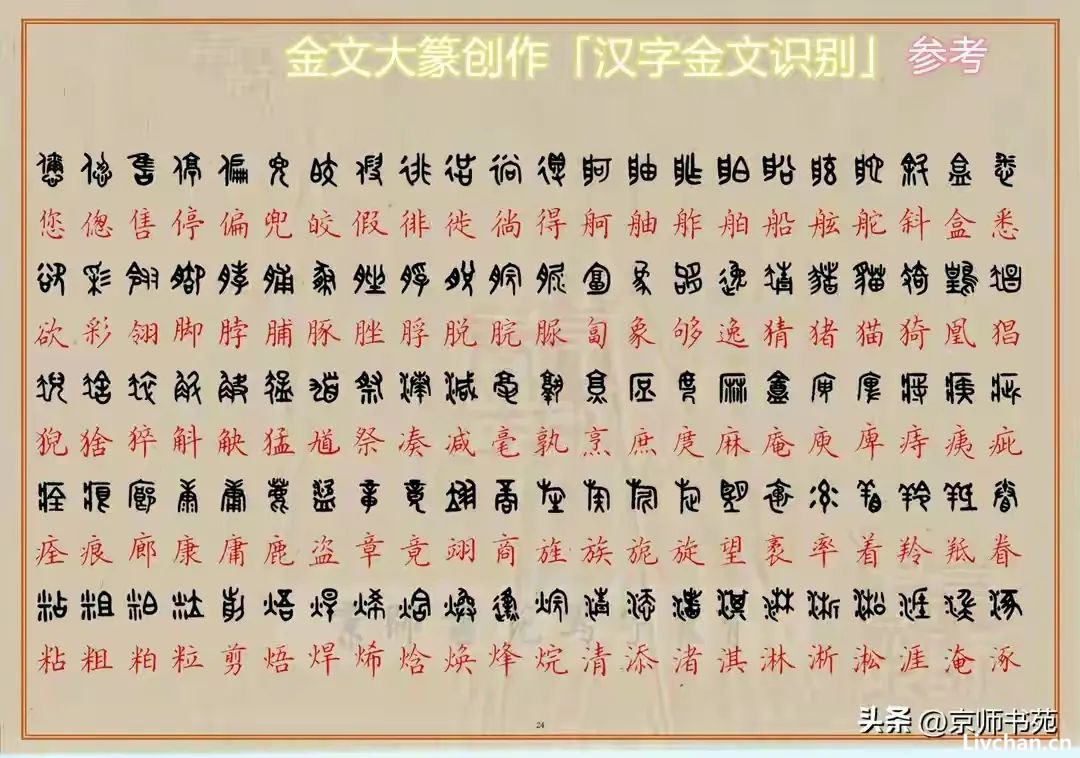 金文大篆创作「汉字金文识别」 参考
您偬售停偏兜皎假徘徙徜得舸舳舴舶船舷舵斜盒悉
欲彩翎脚脖脯豚脞脬脱脘脲匐象够逸猜猪猫猗凰猖
猊猞猝斛觖猛馗祭凑减毫孰烹庶度麻庵庾庳痔痍疵
痊痕廊康庸鹿盗章竟翊商旌族旎旋望袤率着羚羝眷
粘粗粕粒剪焐焊烯焓焕烽烷清添渚淇淋淅淞涯淹涿
24
头条 @京师书苑
Livchan.cn